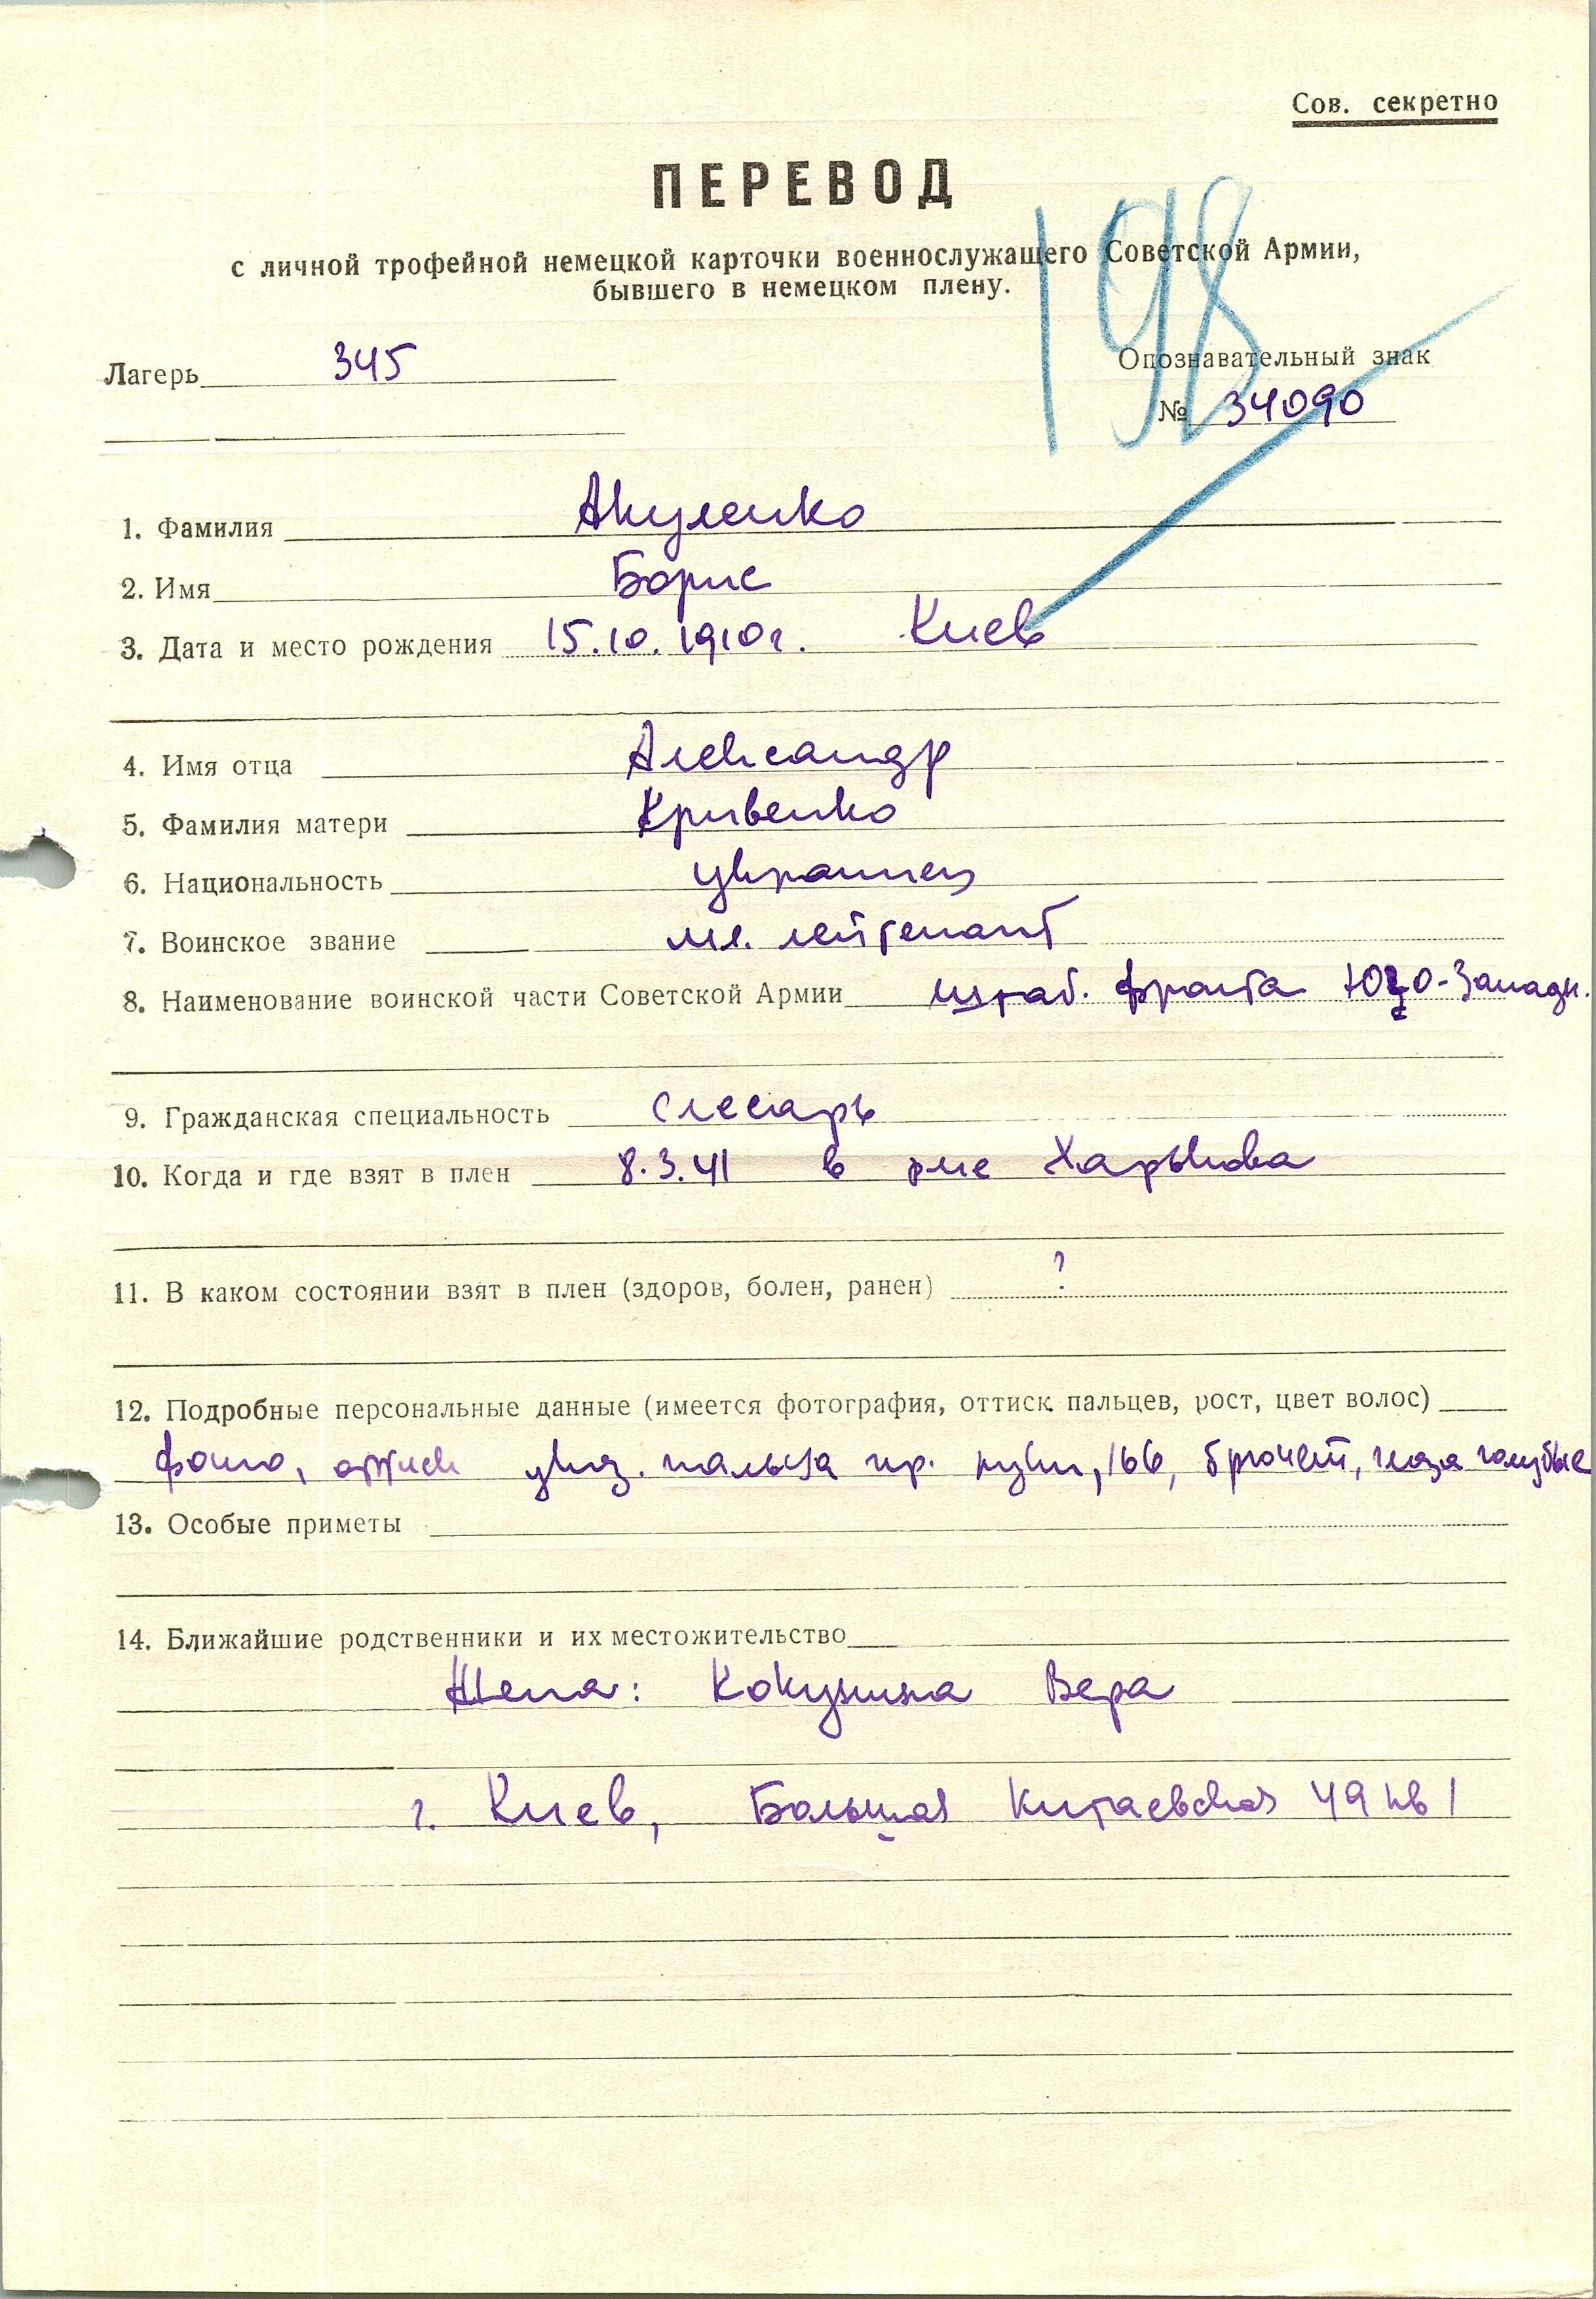 Сов. секретно
ПЕРЕВОД
198
с личной трофейной немецкой карточки военнослужащего Советской Армии,
бывшего в немецком плену.
Лагерь 345
Опознавательный знак
№ 34090
1. Фамилия Акуленко
2. Имя Борис
3. Дата и место рождения 15.10.1910г. Киев
4. Имя отца Александр
5. Фамилия матери Кривенко
6. Национальность украинец
7. Воинское звание мл. лейтенант
8. Наименование воинской части Советской Армии штаб. фронта Юго-Западн.
9. Гражданская специальность слесарь
10. Когда и где взят в плен 8.3.41 в р-не Харькова
11. В каком состоянии взят в плен (здоров, болен, ранен) ?
12. Подробные персональные данные (имеется фотография, оттиск пальцев, рост, цвет волос)
фото, оттиск указ. пальца пр. руки, 166, брюнет, глаза голубые
13. Особые приметы
14. Ближайшие родственники и их местожительство
Жена: Вера
г. Киев, Большая Китаевская 49 кв 1